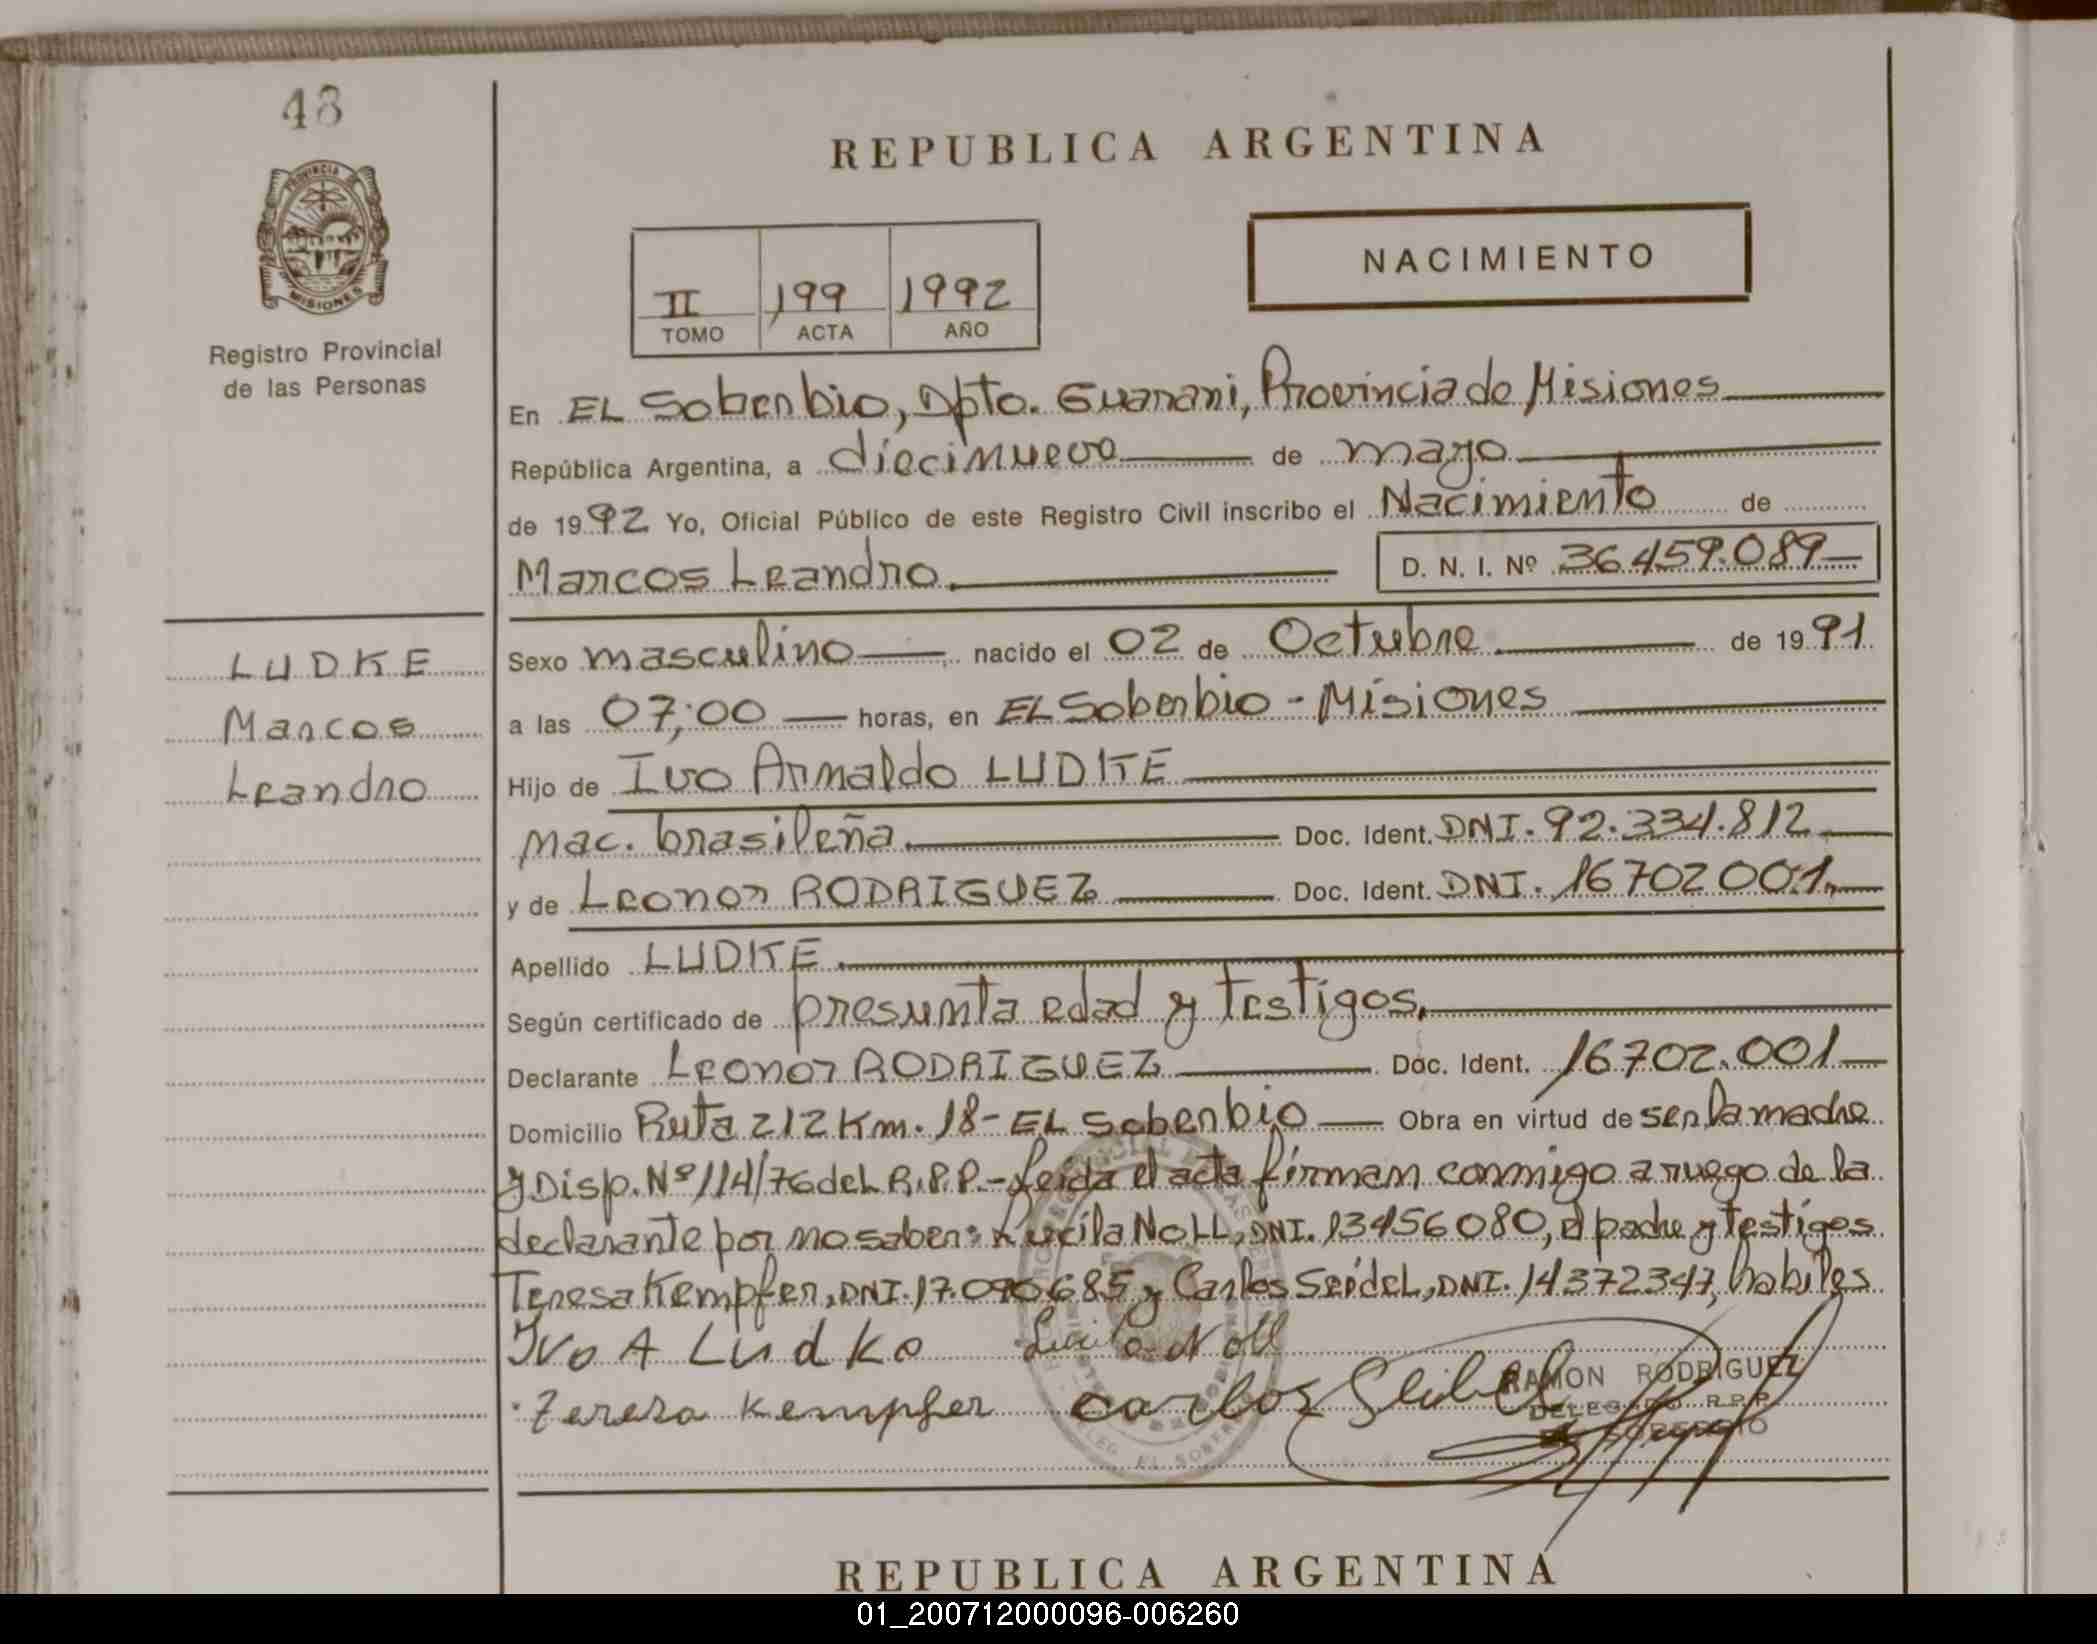 48
PROVINCIA DE
MISIONES
Registro Provincial
de las Personas
REPUBLICA ARGENTINA
NACIMIENTO
II 199 1992
TOMO ACTA AÑO
En EL Soberbio, Dpto. Guarani, Provincia de Misiones
República Argentina, a diecinueve de mayo
de 1992 Yo, Oficial Público de este Registro Civil inscribo el Nacimiento de
Marcos Leandro. D. N. I. Nº 36.459.089
LUDKE
Marcos
Leandro
Sexo masculino nacido el 02 de Octubre de 1991.
a las 07;00 horas, en EL Soberbio - Misiones
Hijo de Ivo Arnaldo LUDKE
nac. brasileña. Doc. Ident. DNI. 92.334.812
y de Leonor RODRIGUEZ Doc. Ident. DNI. 16702001.
Apellido LUDKE.
Según certificado de presunta edad y testigos.
Declarante Leonor RODRIGUEZ Doc. Ident. 16702.001
Domicilio Ruta 212 Km. 18 - EL Soberbio Obra en virtud de ser la madre
y Disp. Nº 114/76 del R.P.P. - Leída el acta firman conmigo a ruego de la
declarante por no saber: Lucila NOLL, DNI. 13456080, el padre y testigos
Teresa Kempfer, DNI. 17.090.685 y Carlos SeideL, DNI. 14372347, habiles
Ivo A Ludke Lucila Noll
Teresa Kempfer Carlos Seidel
RAMON RODRIGUEZ
DELEGADO R.P.P.
EL SOBERBIO
REPUBLICA ARGENTINA
01_200712000096-006260